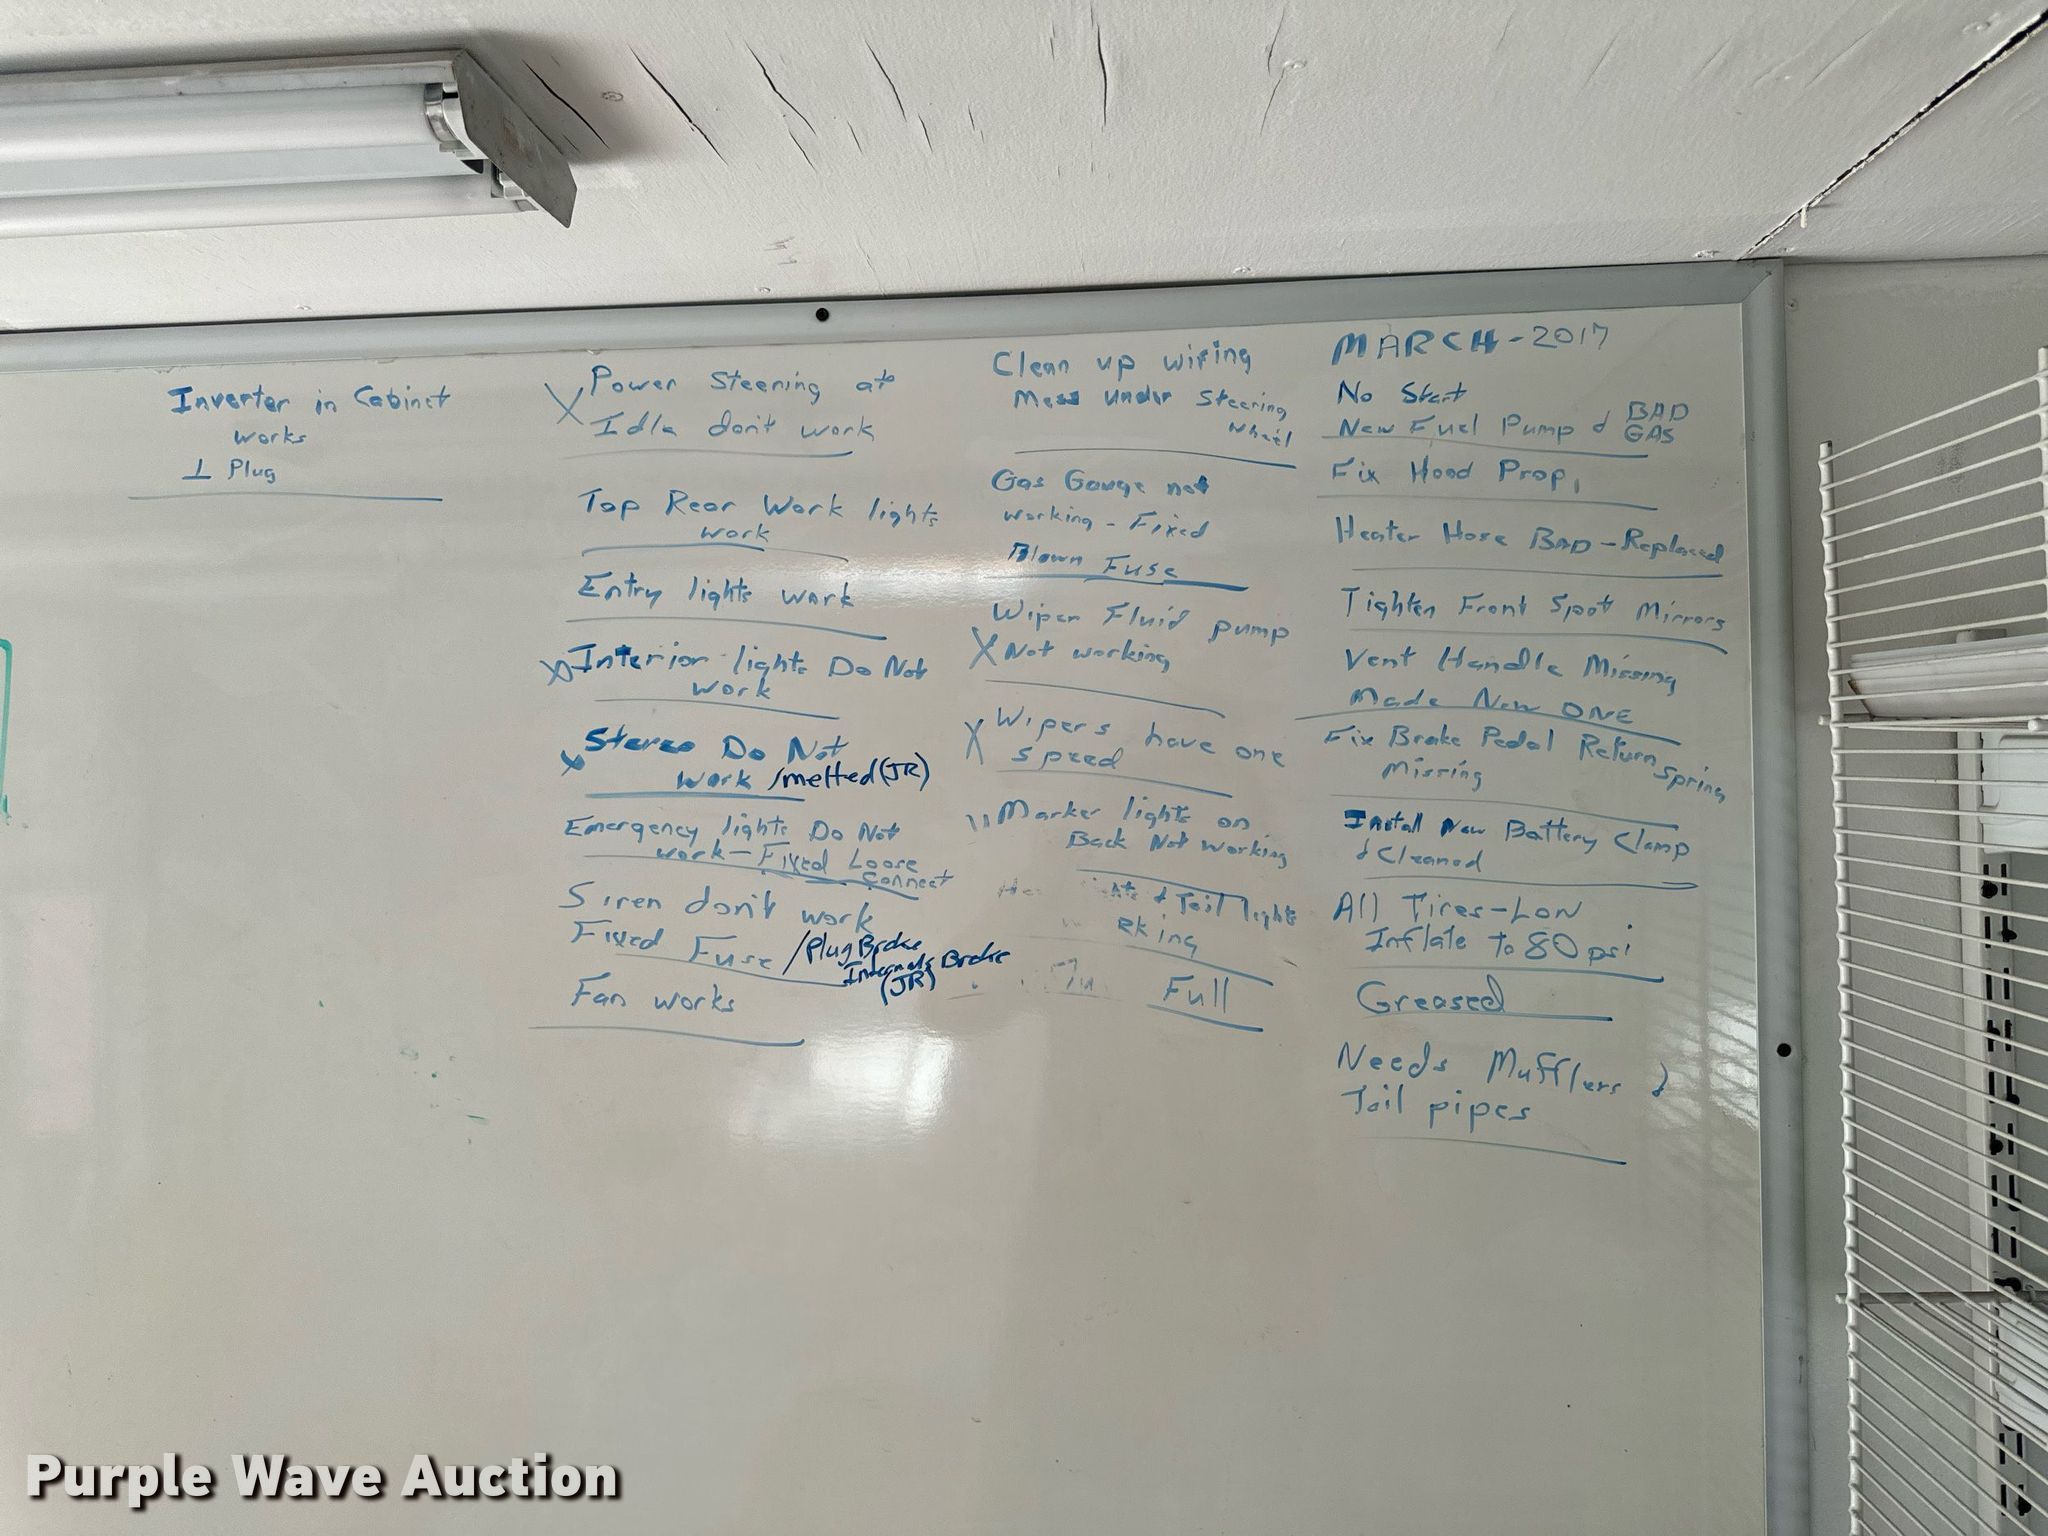 Inverter in Cabinet
works
1 Plug
X Power Steering at
Idle don't work
Top Rear Work lights
work
Entry lights work
X Interior lights Do Not
work
X Stereo Do Not
work /melted (JR)
Emergency lights Do Not
work - Fixed Loose
connect
Siren don't work
Fixed Fuse /Plug Broke
Internals Broke
(JR)
Fan works
Clean up wiring
Mess under Steering
wheel
Gas Gauge not
working - Fixed
Blown Fuse
Wiper Fluid pump
X Not working
X Wipers have one
speed
Marker lights on
Back Not working
& Tail lights
Full
MARCH - 2017
No Start
New Fuel Pump & BAD
GAS
Fix Hood Prop
Heater Hose BAD - Replaced
Tighten Front Spot Mirrors
Vent Handle Missing
Made New ONE
Fix Brake Pedal Return Spring
Missing
Install New Battery Clamp
& Cleaned
All Tires - Low
Inflate to 80 psi
Greased
Needs Mufflers &
Tail pipes
Purple Wave Auction